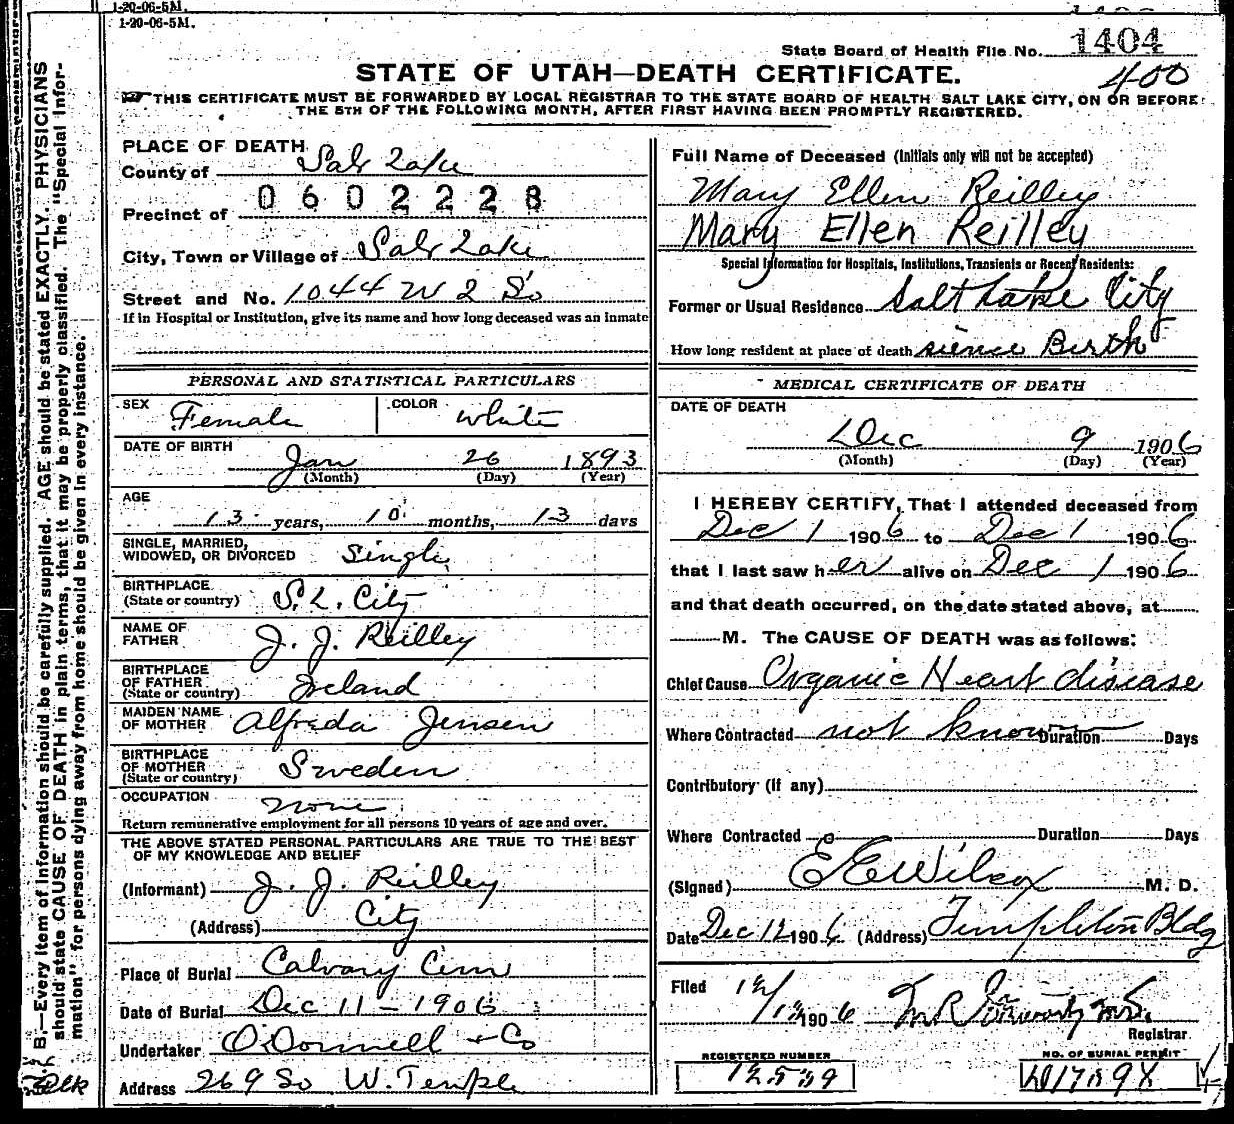 1-20-06-5M.
1-20-06-5M.
State Board of Health File No. 1404
400
STATE OF UTAH—DEATH CERTIFICATE.
THIS CERTIFICATE MUST BE FORWARDED BY LOCAL REGISTRAR TO THE STATE BOARD OF HEALTH SALT LAKE CITY, ON OR BEFORE
THE 5TH OF THE FOLLOWING MONTH, AFTER FIRST HAVING BEEN PROMPTLY REGISTERED.
B.—Every item of information should be carefully supplied. AGE should be stated EXACTLY. PHYSICIANS
should state CAUSE OF DEATH in plain terms, that it may be properly classified. The "Special Infor-
mation" for persons dying away from home should be given in every instance.
PLACE OF DEATH
County of Salt Lake
0602228
Precinct of
City, Town or Village of Salt Lake
Street and No. 1044 W 2 So
If in Hospital or Institution, give its name and how long deceased was an inmate
PERSONAL AND STATISTICAL PARTICULARS
SEX Female COLOR White
DATE OF BIRTH
Jan 26 1893
(Month) (Day) (Year)
AGE
13 years, 10 months, 13 days
SINGLE, MARRIED,
WIDOWED, OR DIVORCED Single
BIRTHPLACE
(State or country) S. L. City
NAME OF
FATHER J. J. Reilley
BIRTHPLACE
OF FATHER
(State or country) Ireland
MAIDEN NAME
OF MOTHER Alfreda Jensen
BIRTHPLACE
OF MOTHER
(State or country) Sweden
OCCUPATION none
Return remunerative employment for all persons 10 years of age and over.
THE ABOVE STATED PERSONAL PARTICULARS ARE TRUE TO THE BEST
OF MY KNOWLEDGE AND BELIEF
(Informant) J. J. Reilley
(Address) City
Place of Burial Calvary Cem
Date of Burial Dec 11 - 1906
Undertaker O'Donnell & Co
Address 269 So W. Temple
Full Name of Deceased (Initials only will not be accepted)
Mary Ellen Reilley
Mary Ellen Reilley
Special Information for Hospitals, Institutions, Transients or Recent Residents:
Former or Usual Residence Salt Lake City
How long resident at place of death sience Birth
MEDICAL CERTIFICATE OF DEATH
DATE OF DEATH
Dec 9 1906
(Month) (Day) (Year)
I HEREBY CERTIFY, That I attended deceased from
Dec 1 1906 to Dec 1 1906
that I last saw her alive on Dec 1 1906
and that death occurred, on the date stated above, at
M. The CAUSE OF DEATH was as follows:
Chief Cause Organic Heart disease
Where Contracted not known Duration Days
Contributory (if any)
Where Contracted Duration Days
(Signed) E E Wilcox M. D.
Date Dec 12 1906 (Address) Templeton Bldg
Filed 12/12 1906
Registrar
REGISTERED NUMBER
NO. OF BURIAL PERMIT